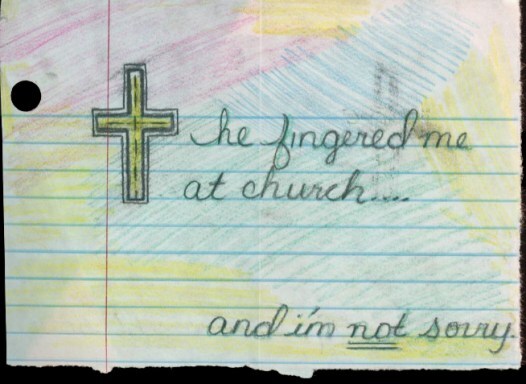 he fingered me
at church....
and i'm not sorry.